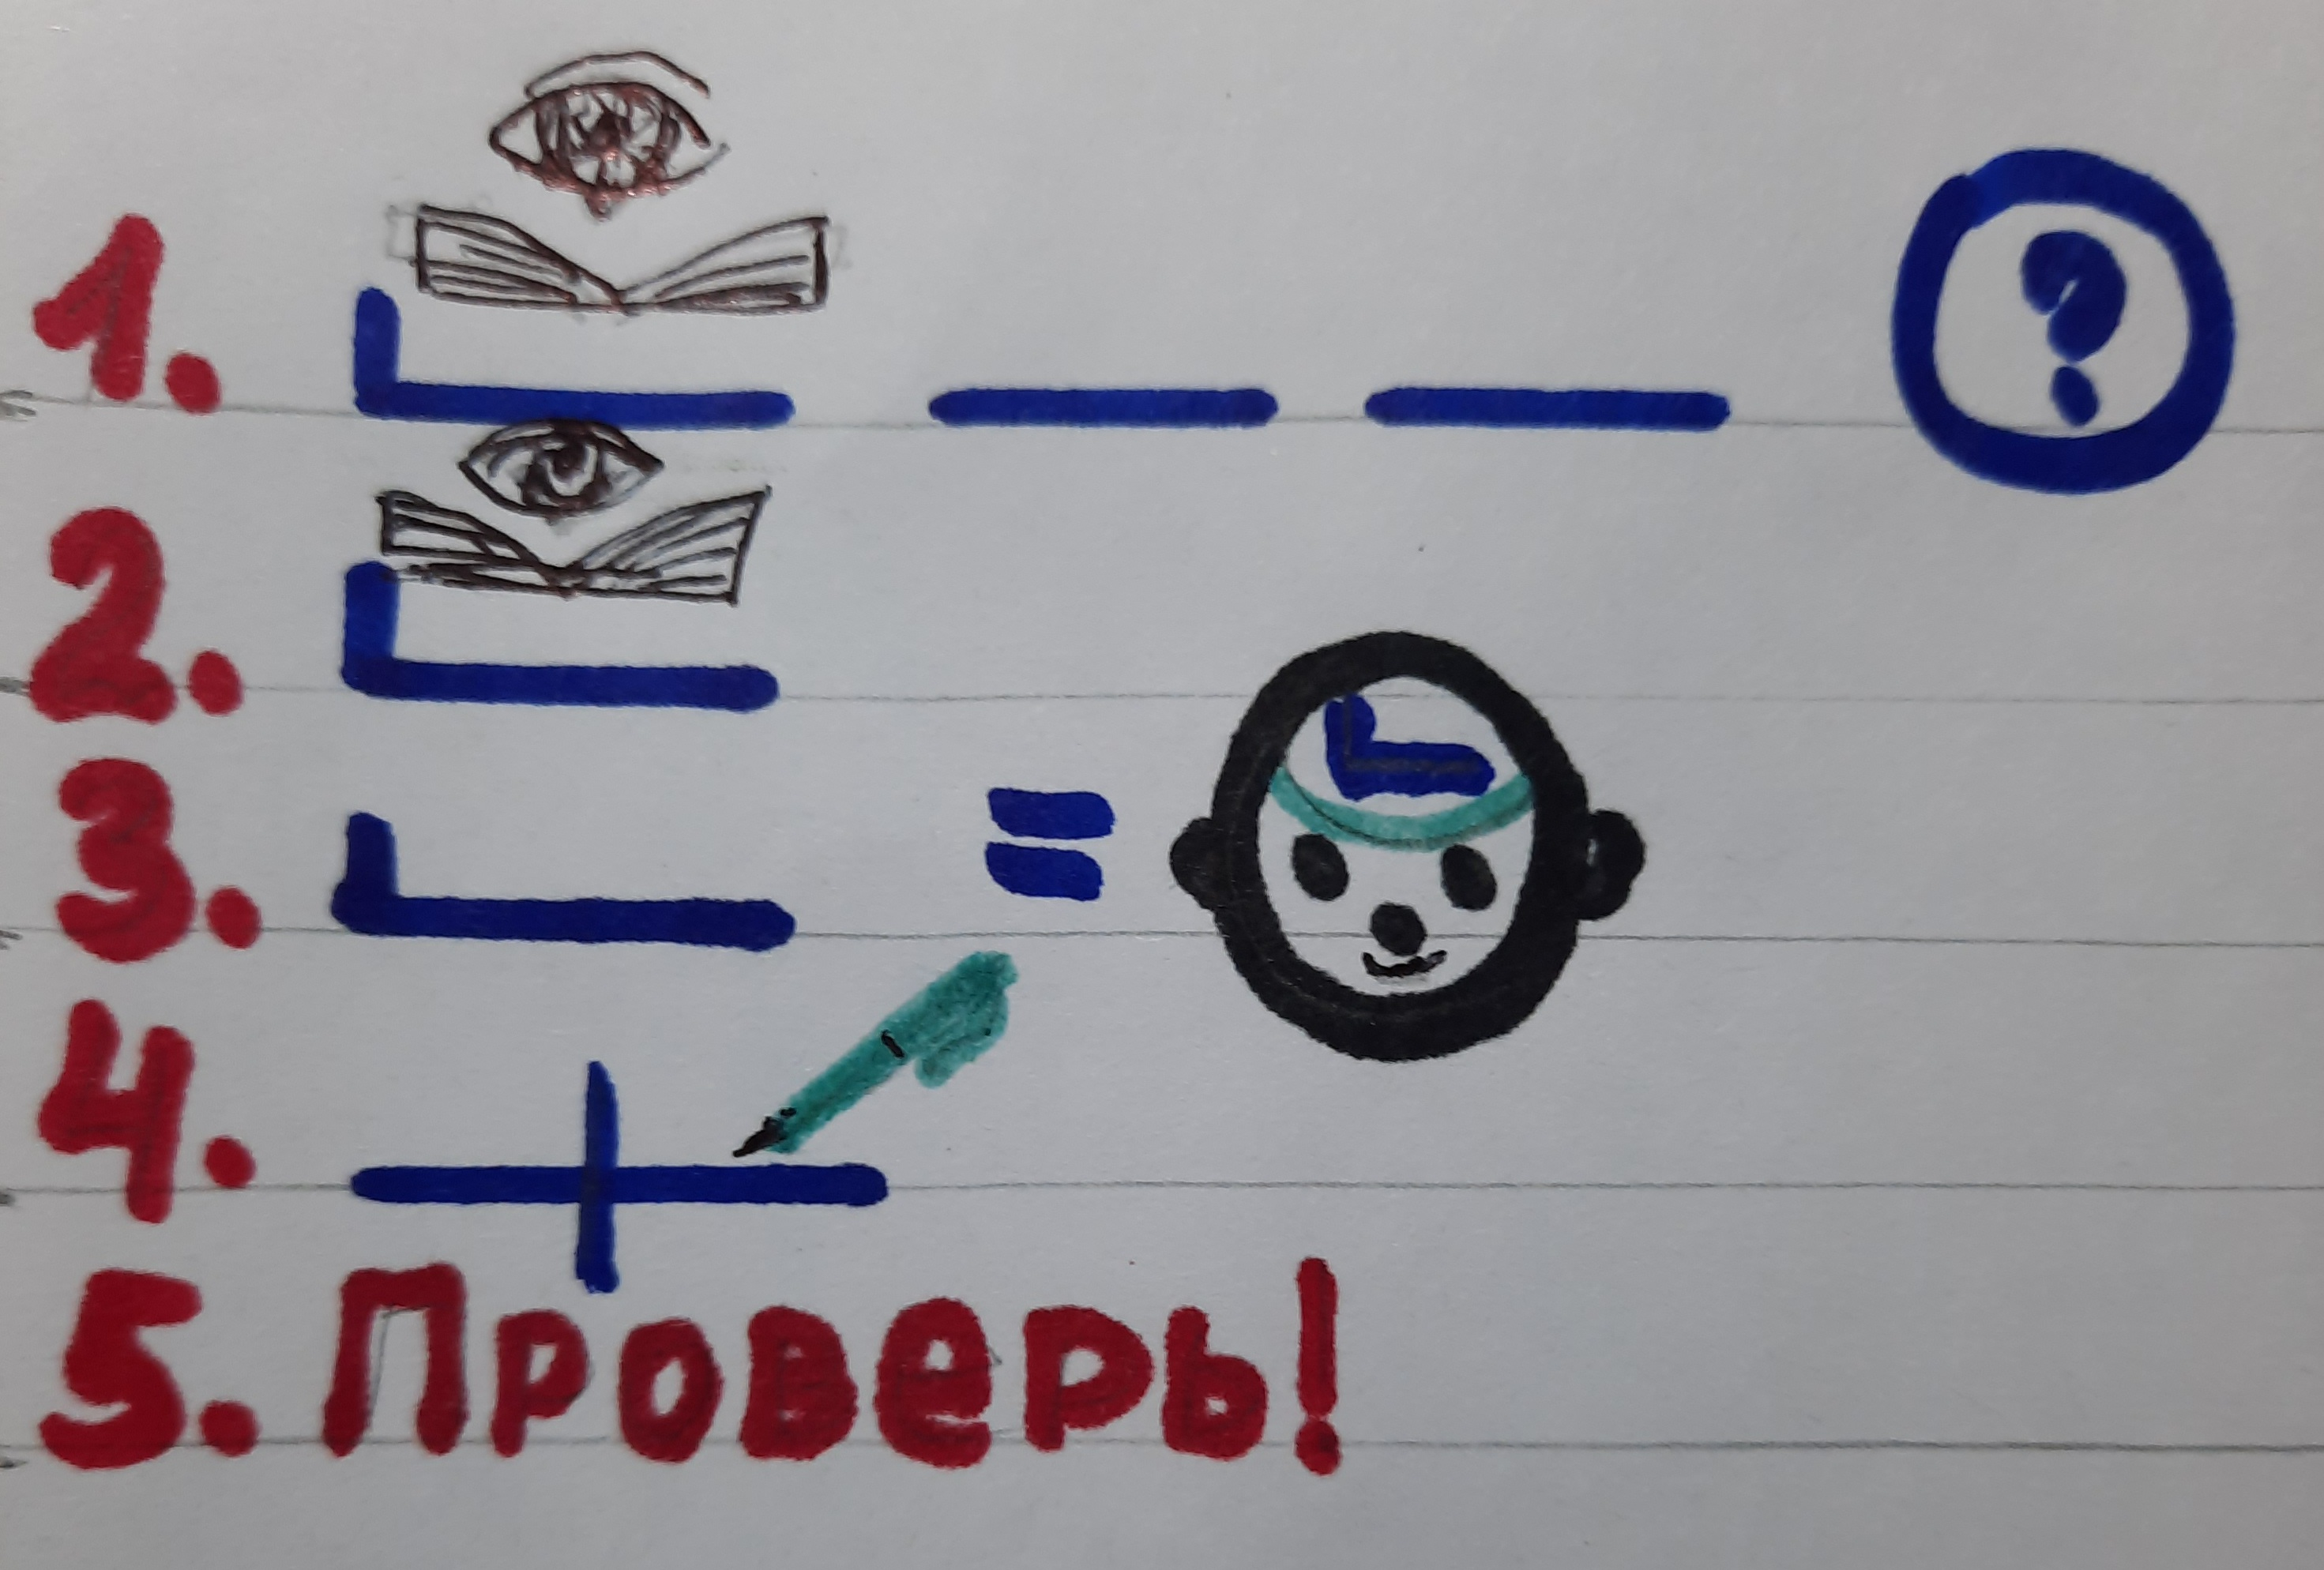 1. ?
2.
3. =
4.
5. Проверь!